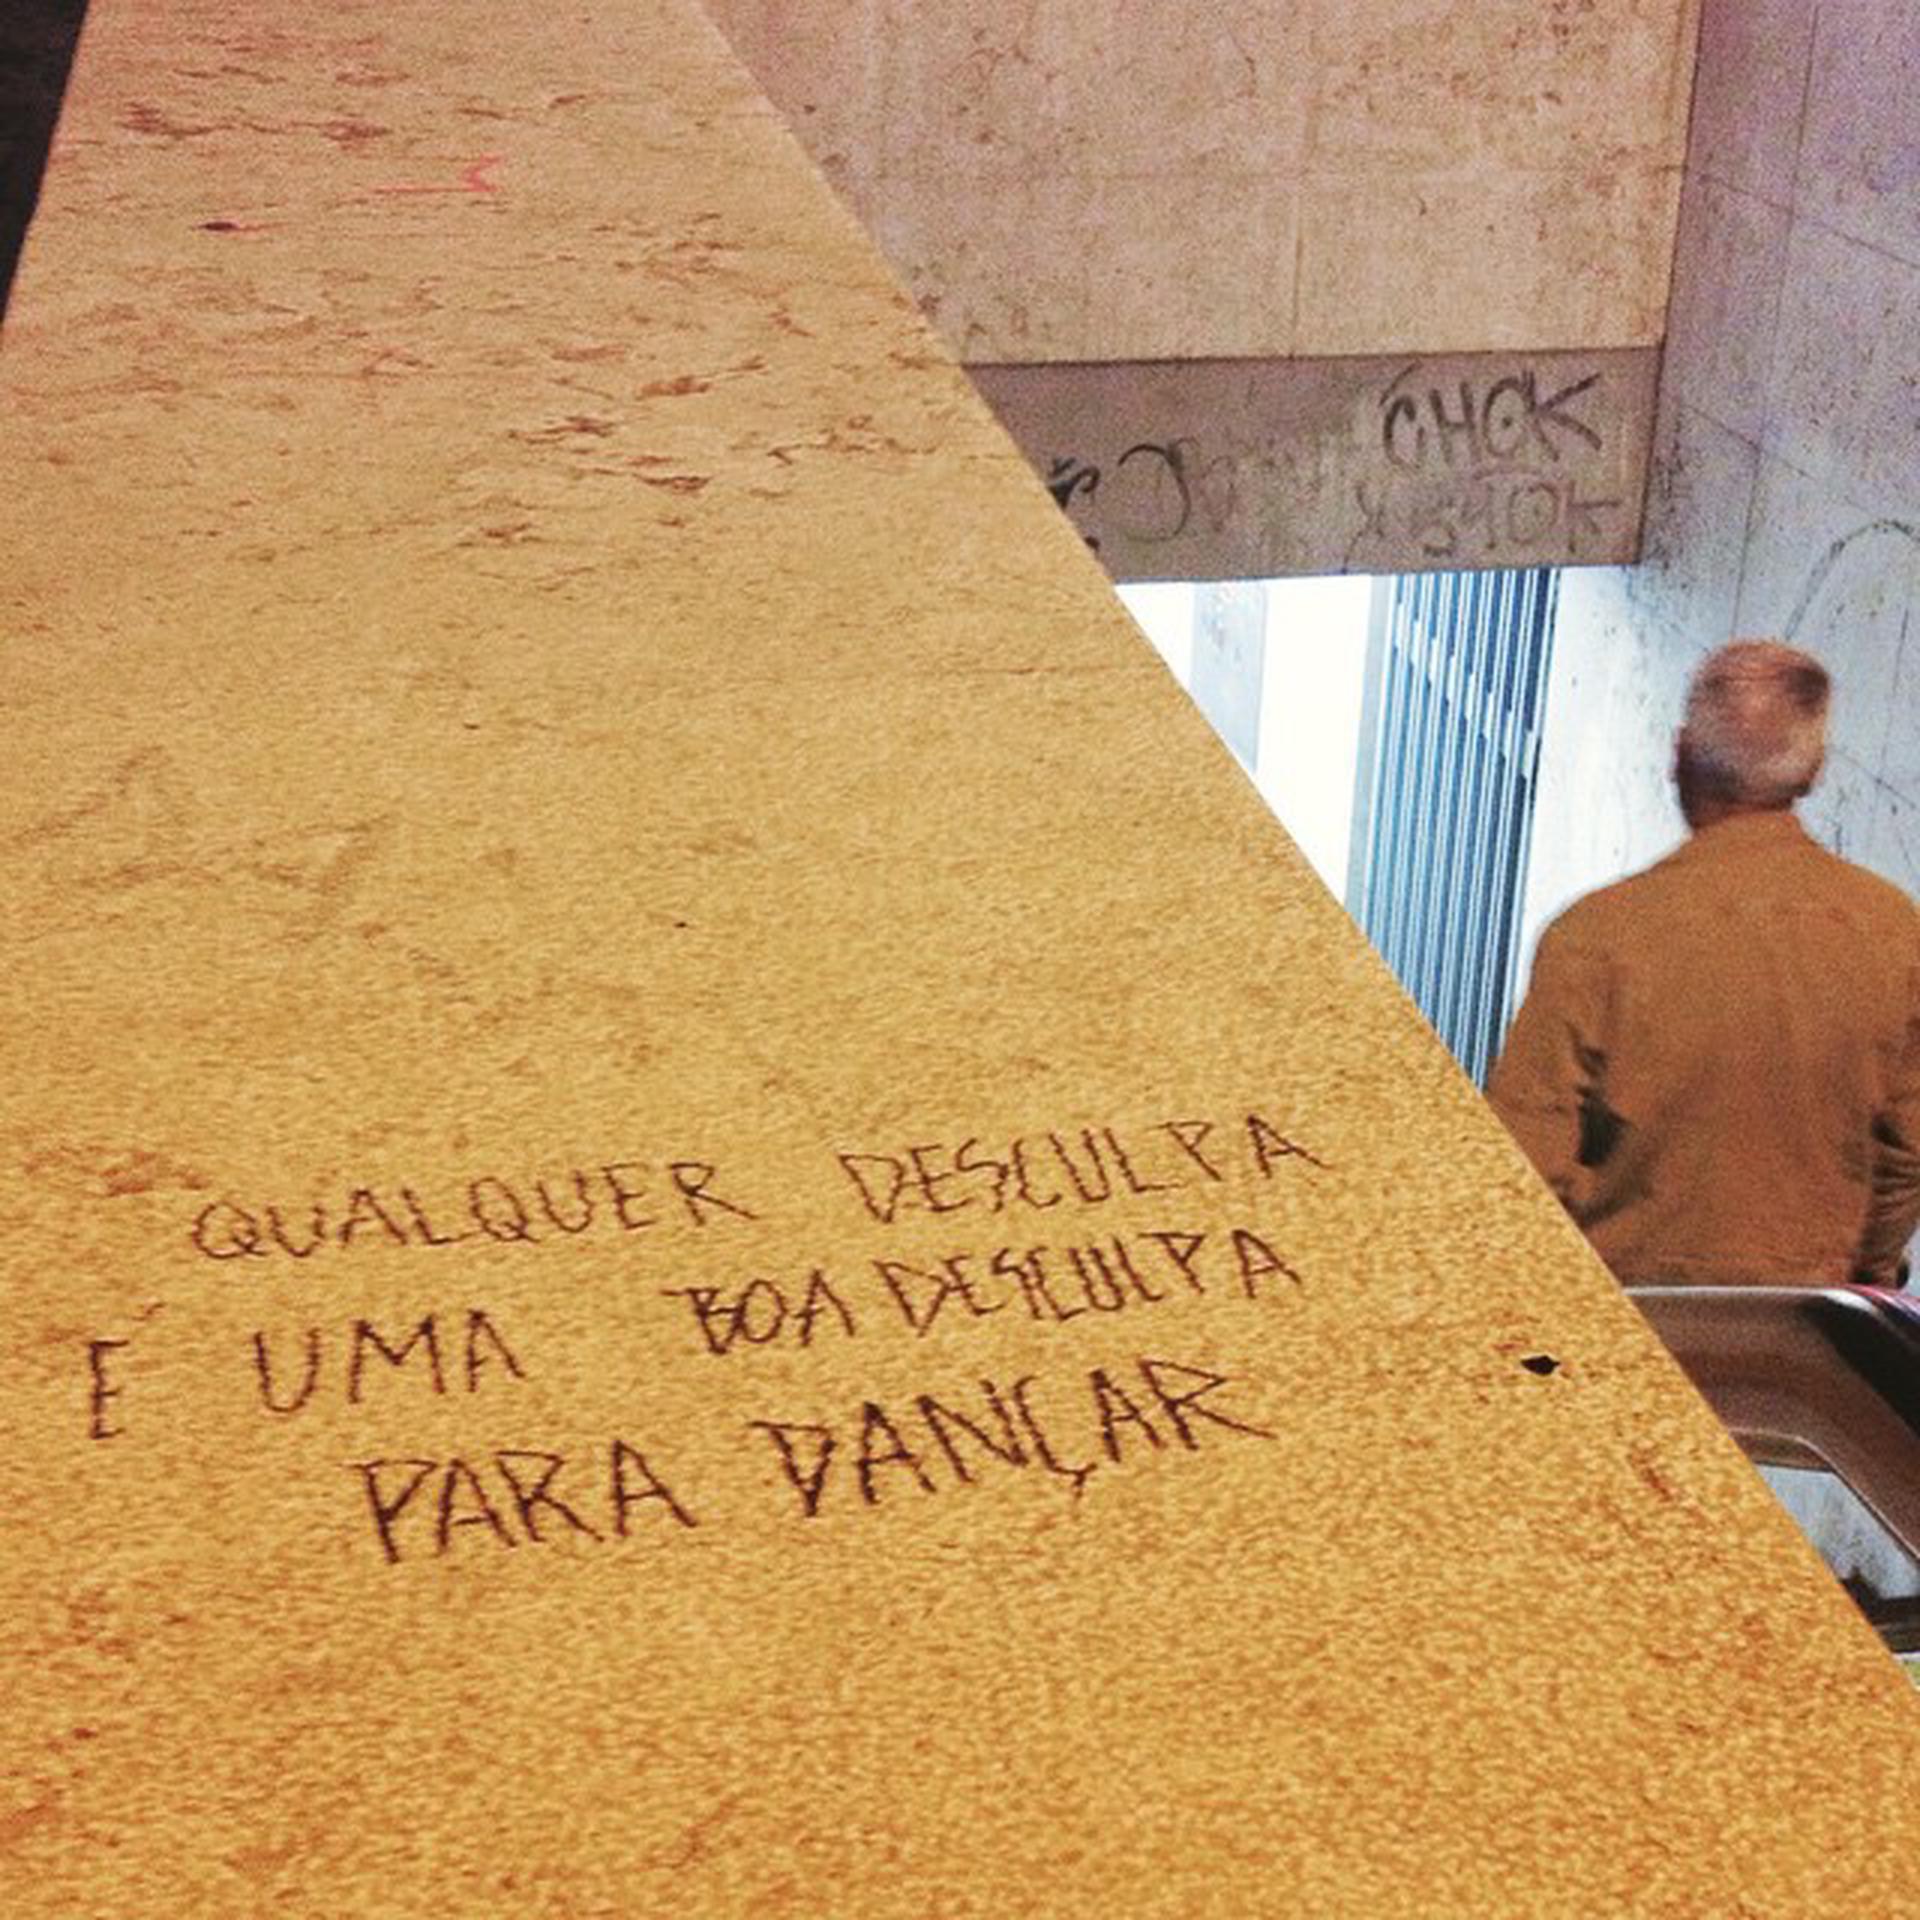 CHCK
QUALQUER DESCULPA
É UMA BOA DESCULPA
PARA DANÇAR